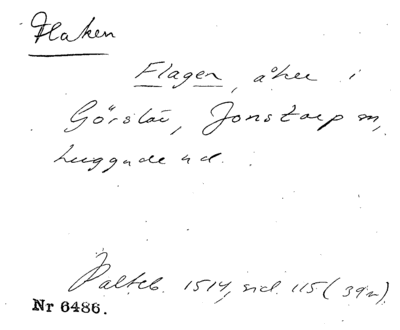 Flaken
Flagen, åker i
Görslöv, Jonstorp m,
Luggude hd.
Palteb. 1514, sid. 115 (39v)
Nr 6486.